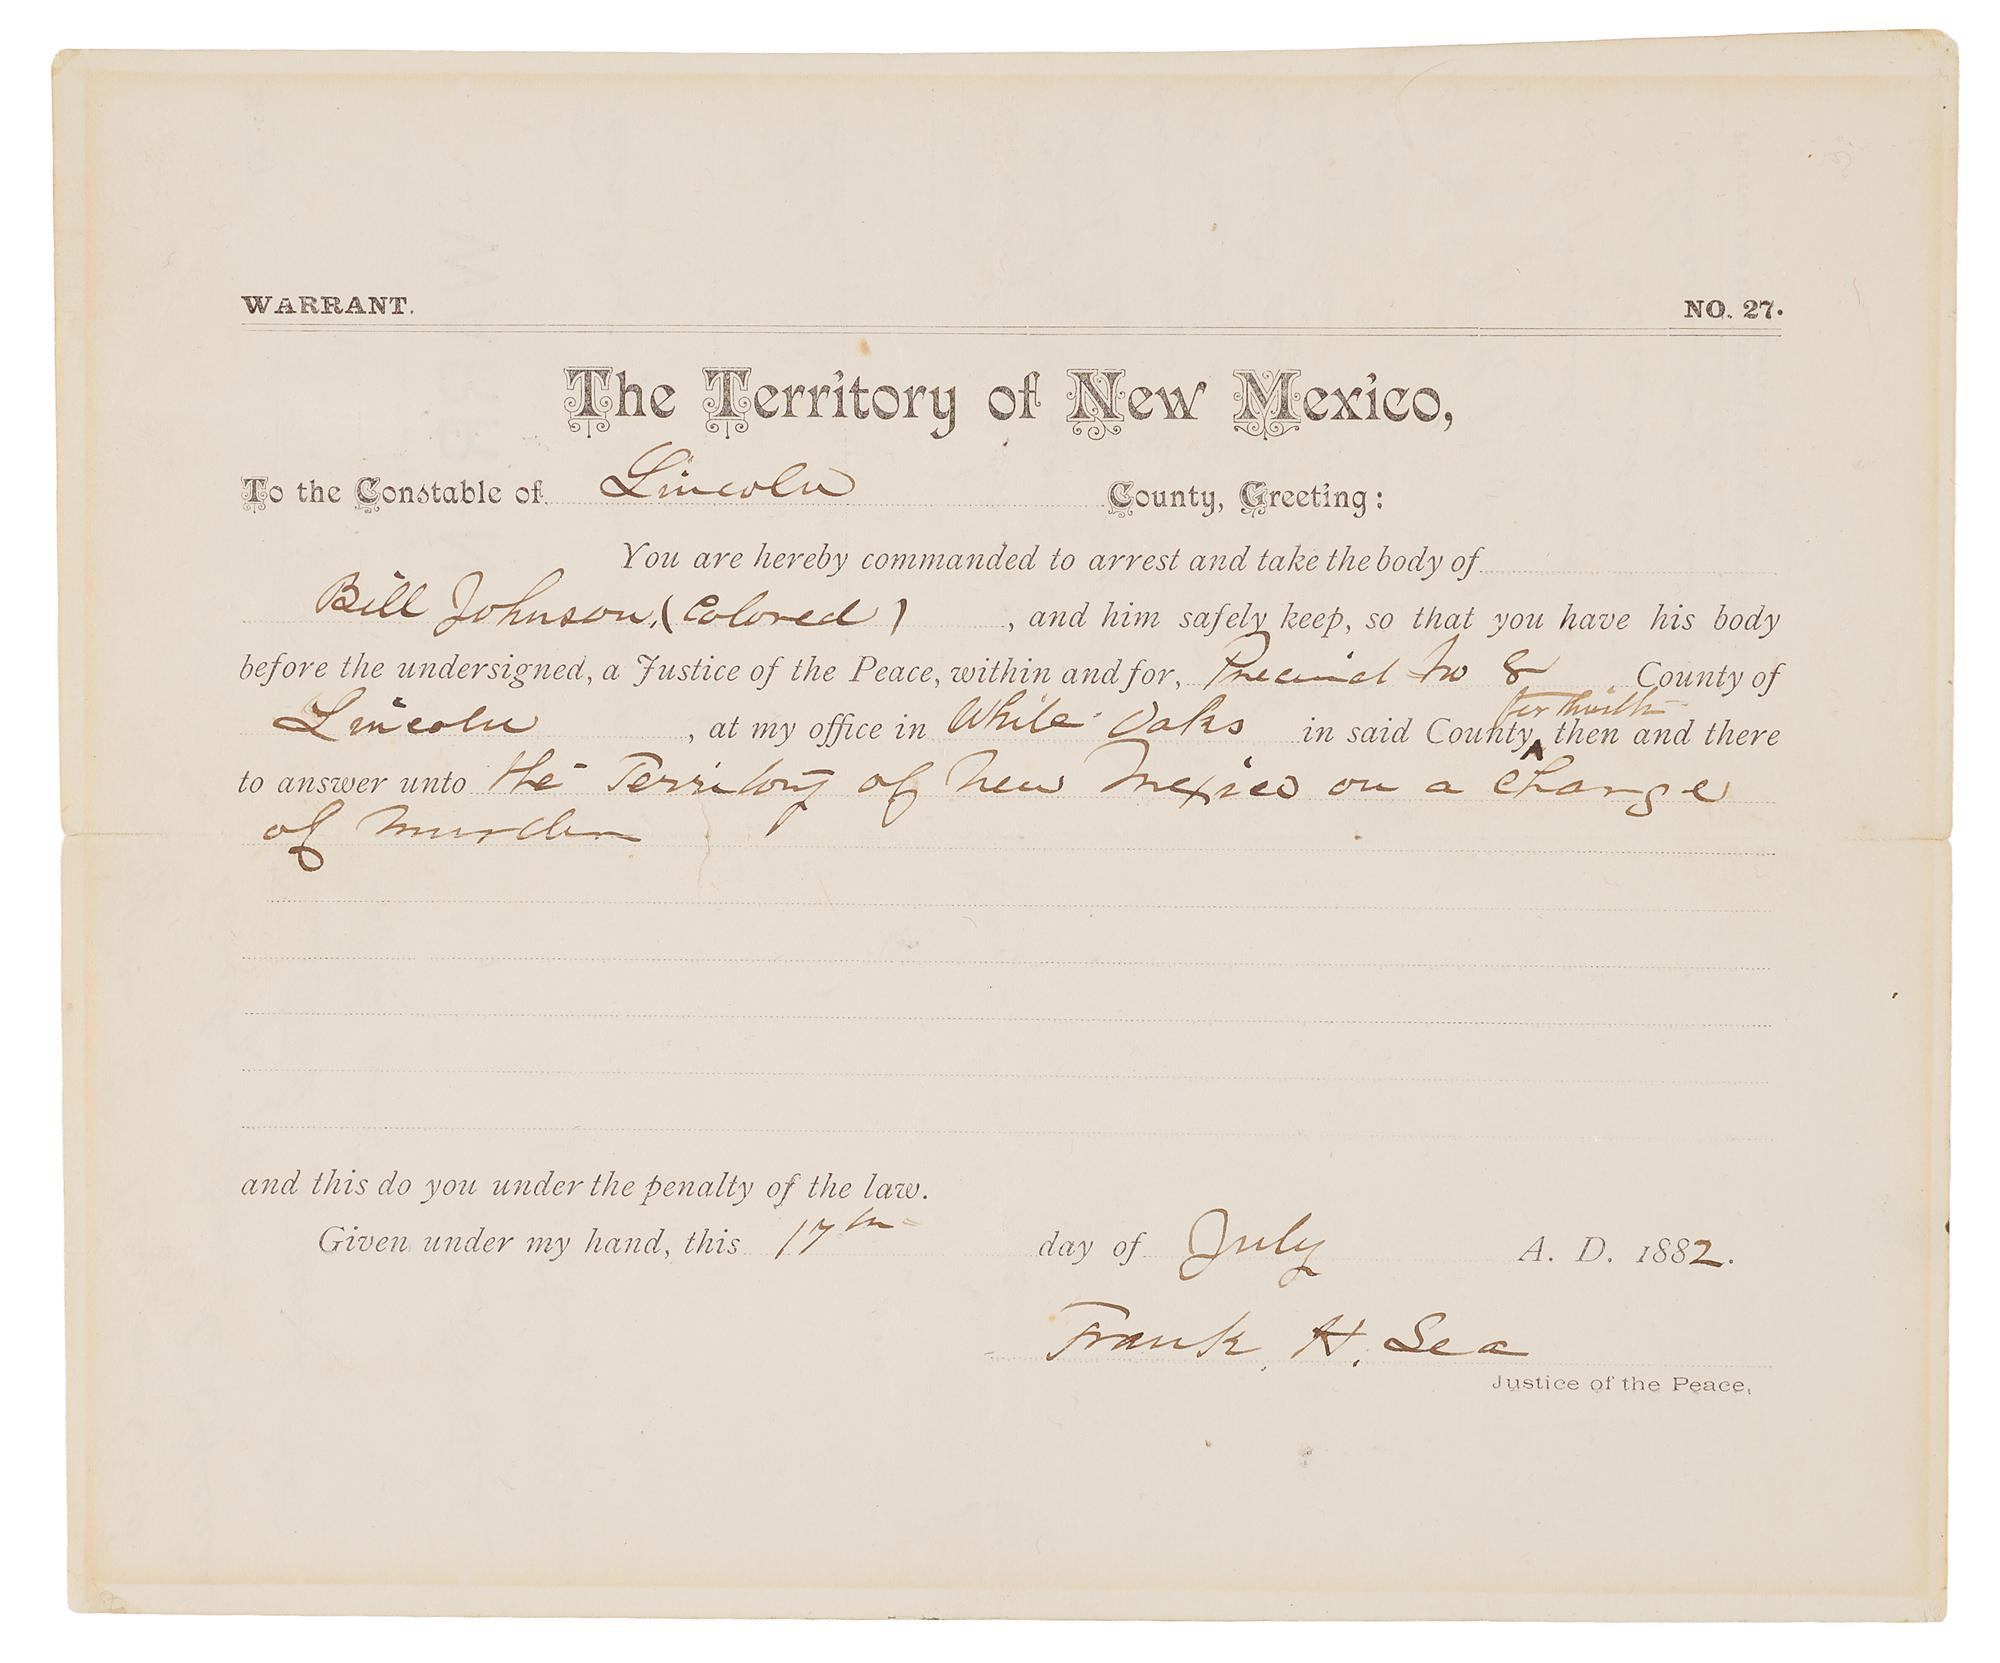 WARRANT. NO. 27.
The Territory of New Mexico,
To the Constable of Lincoln County, Greeting:
You are hereby commanded to arrest and take the body of
Bill Johnson, (Colored) , and him safely keep, so that you have his body
before the undersigned, a Justice of the Peace, within and for, Precinct No 8 County of
forthwith
Lincoln , at my office in White Oaks in said County ^ then and there
to answer unto the Territory of New Mexico on a charge
of murder
and this do you under the penalty of the law.
Given under my hand, this 17th day of July A. D. 1882.
Frank. H. Lea
Justice of the Peace.